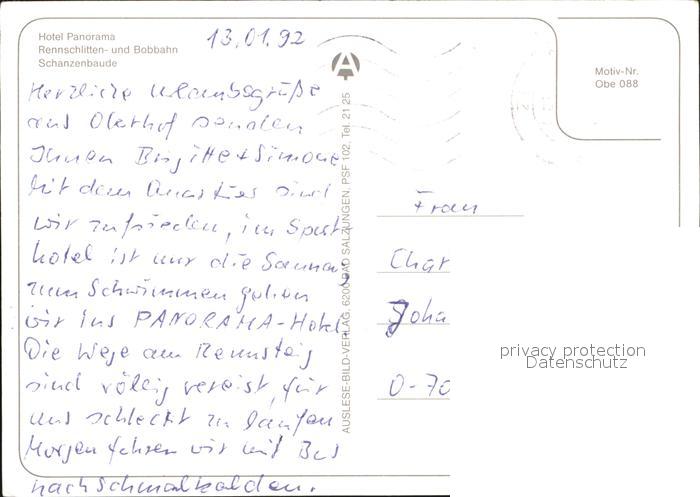 Hotel Panorama
Rennschlitten- und Bobbahn
Schanzenbaude
13.01.92
Herzliche Urlaubsgrüße
aus Oberhof senden
Ihnen Birgitte + Simone
Mit dem Quartier sind
wir zufrieden, im Sport-
hotel ist nur die Sauna,
zum Schwimmen gehen
wir ins PANORAMA-Hotel
Die Wege am Rennsteig
sind völlig vereist, für
uns schlecht zu laufen
Morgen fahren wir mit Bus
nach Schmalkalden.
AUSLESE-BILD-VERLAG, 6200 BAD SALZUNGEN, PSF 102, Tel. 21 25
Motiv-Nr.
Obe 088
Frau
Char
Joha
O-70
privacy protection
Datenschutz